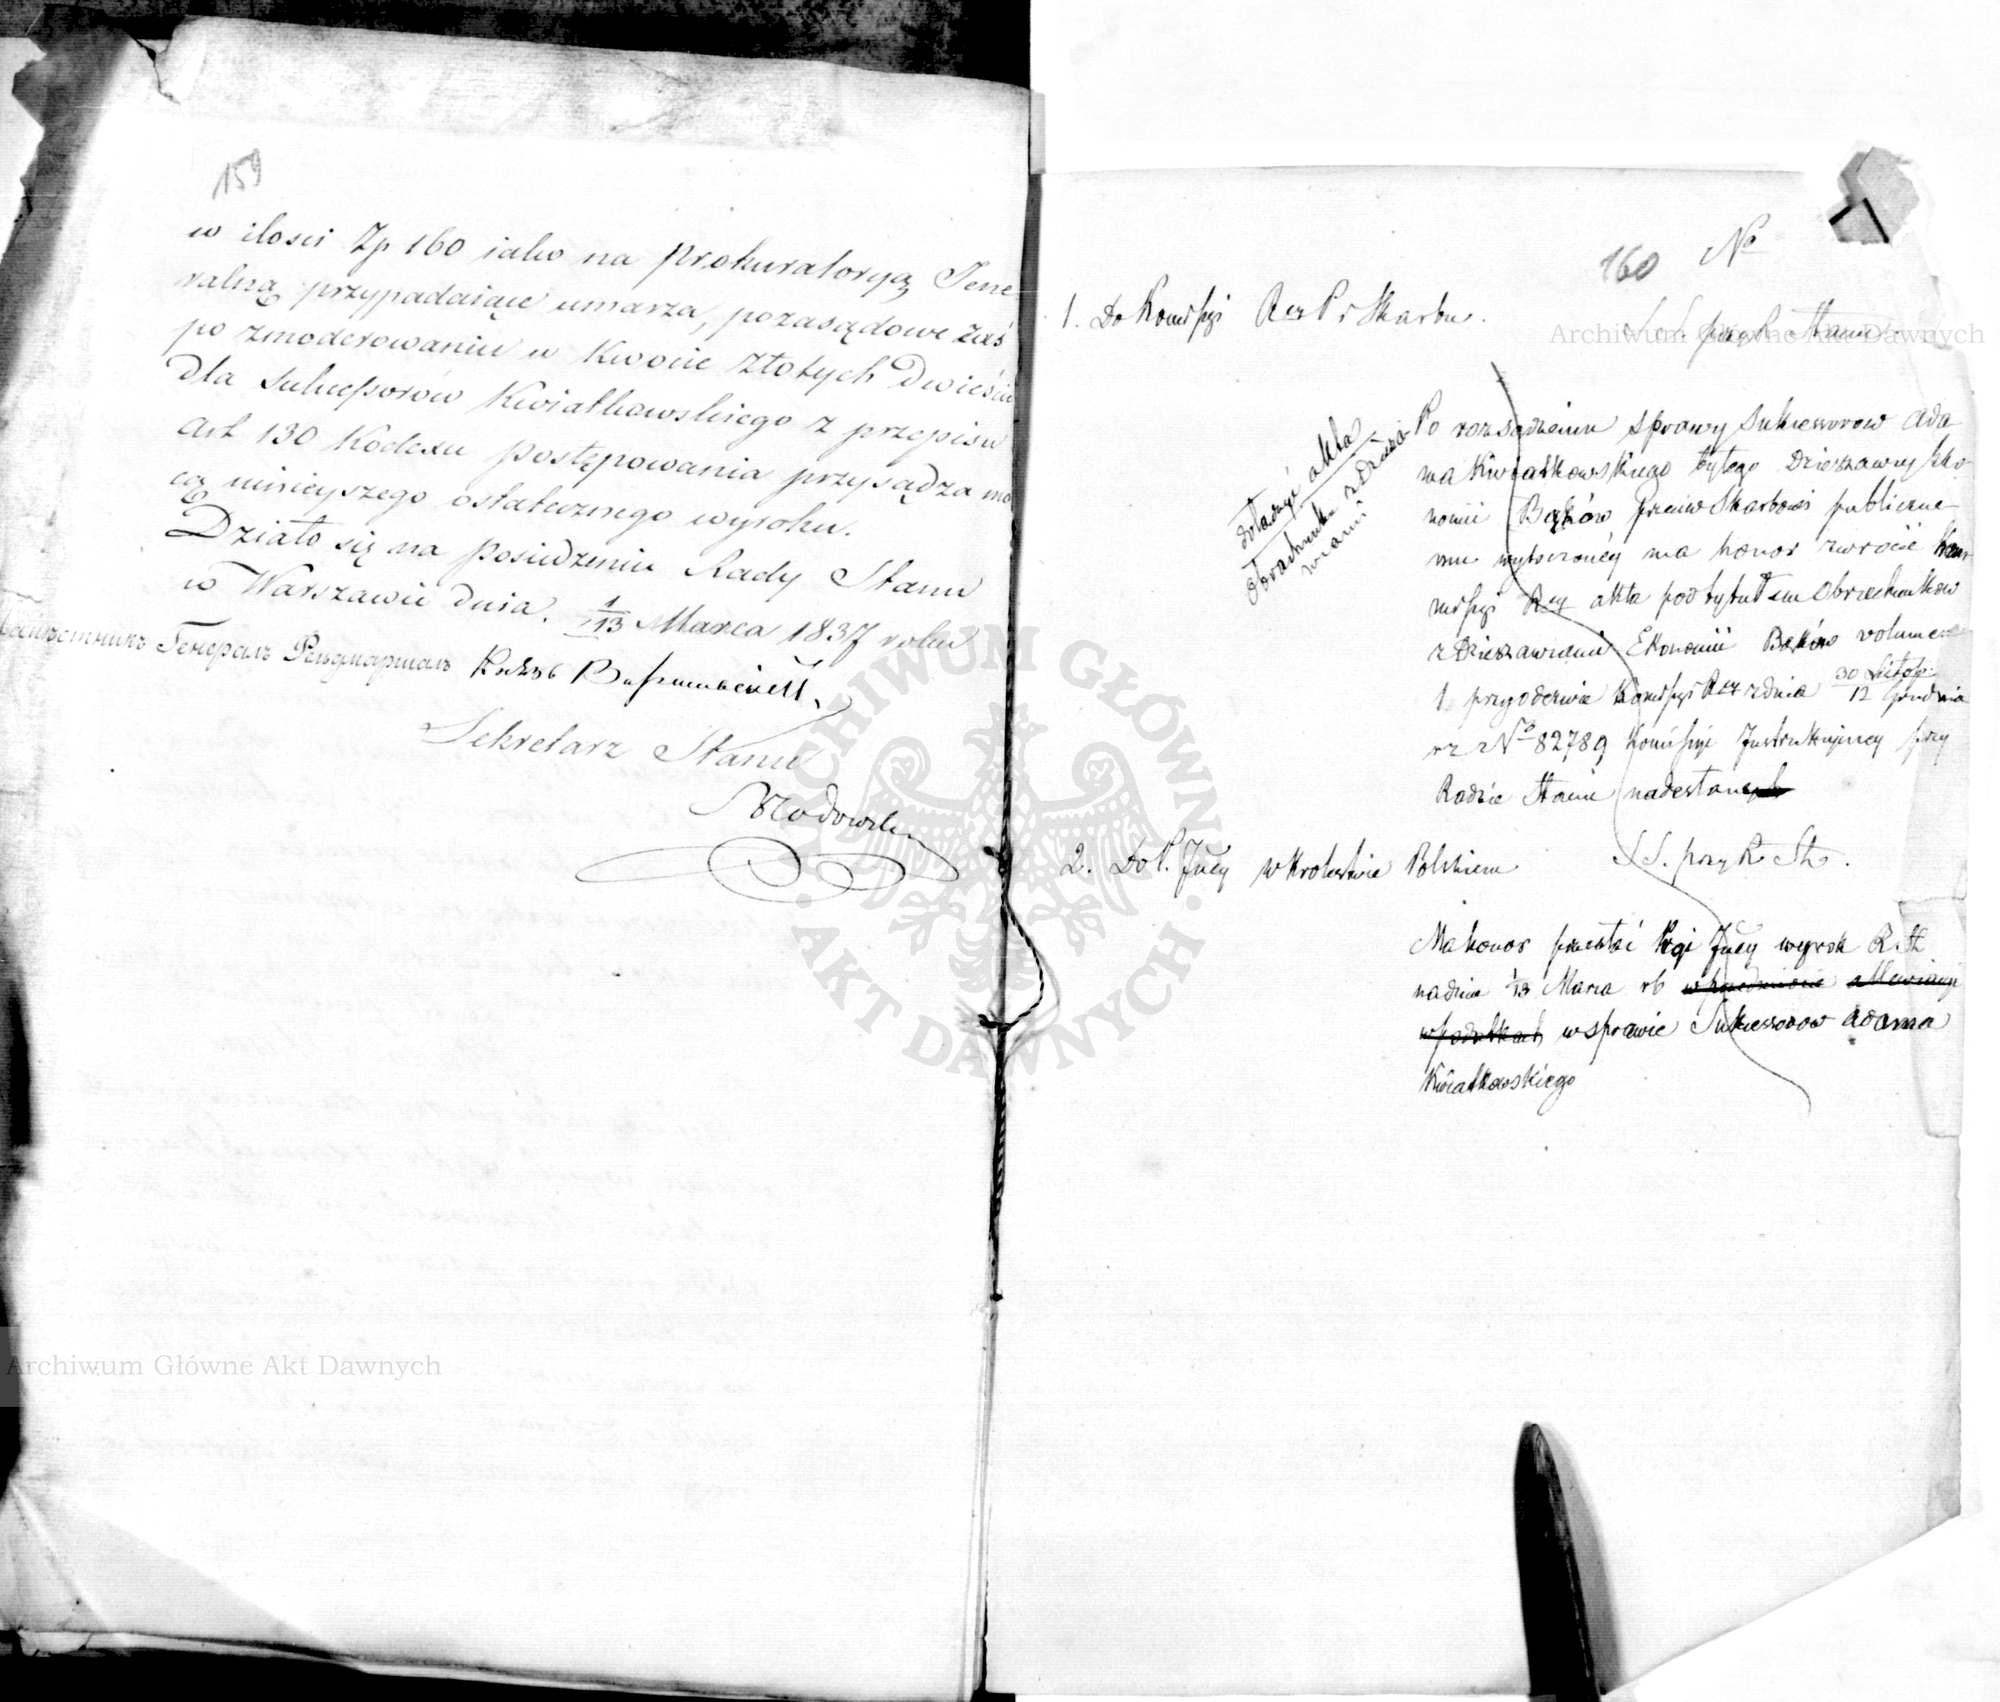 159
w ilości Zp 160 iako na Prokuratoryą Jene-
ralną przypadaiące umarza, pozasądowe zaś
po zmoderowaniu w Kwocie Złotych Dwieście
dla Sukcessorów Kwiatkowskiego z przepisu
Art 130 Kodexu Postępowania przysądza mo
cą ninieyszego ostatecznego wyroku.
Działo się na Posiedzeniu Rady Stanu
w Warszawie dnia 1/13 Marca 1837 roku
Намѣстникъ Генералъ Фельдмаршалъ Князь Варшавскій
Sekretarz Stanu
160 No
1. Do Kommissyi Rzą P i Skarbu.
S. S. przy R Stanu
dołączyć akta
obrachunku z Dzierża-
wami
Po rozsądzeniu sprawy Sukcessorow Ada
ma Kwiatkowskiego byłego Dzierzawcy Eko-
nomii Bąków przeciw Skarbowi publiczne-
mu wytoczonéy ma honor zwrócić Kom
missyi Rzą akta pod tytułem Obrachunkow
z Dzierzawcami Ekonomii Bąków volumen
1 przy odezwie Kommissyi Rzą z dnia 30 Listop: / 12 Grudnia
No 82789 Kommissyi Instrukcyiney przy
Radzie Stanu nadesłane
2. Do P. Jlney w Krolestwie Polskiem
S S. przy R St.
Ma honor przesłać Prgi Jlney wyrok R. St
na dniu 1/13 Marca rb
w sprawie Sukcessorow Adama
Kwiatkowskiego
ARCHIWUM GŁÓWNE AKT DAWNYCH
Archiwum Główne Akt Dawnych
Archiwum Główne Akt Dawnych